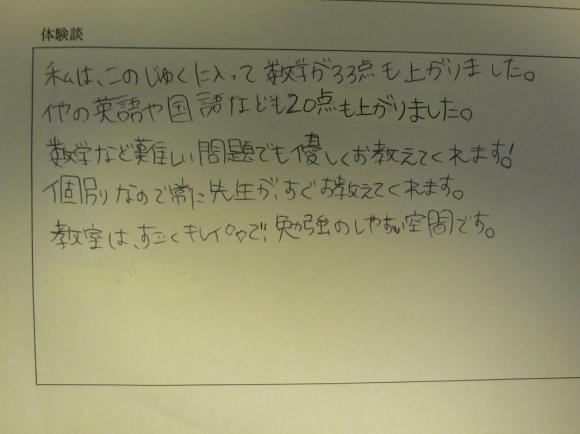 体験談
私は、このじゅくに入って数学が33点も上がりました。
他の英語や国語なども20点も上がりました。
数学など難しい問題でも優しくお教えてくれます!
個別なので常に先生が、すぐお教えてくれます。
教室は、すごくキレイので、勉強のしやすい空間です。